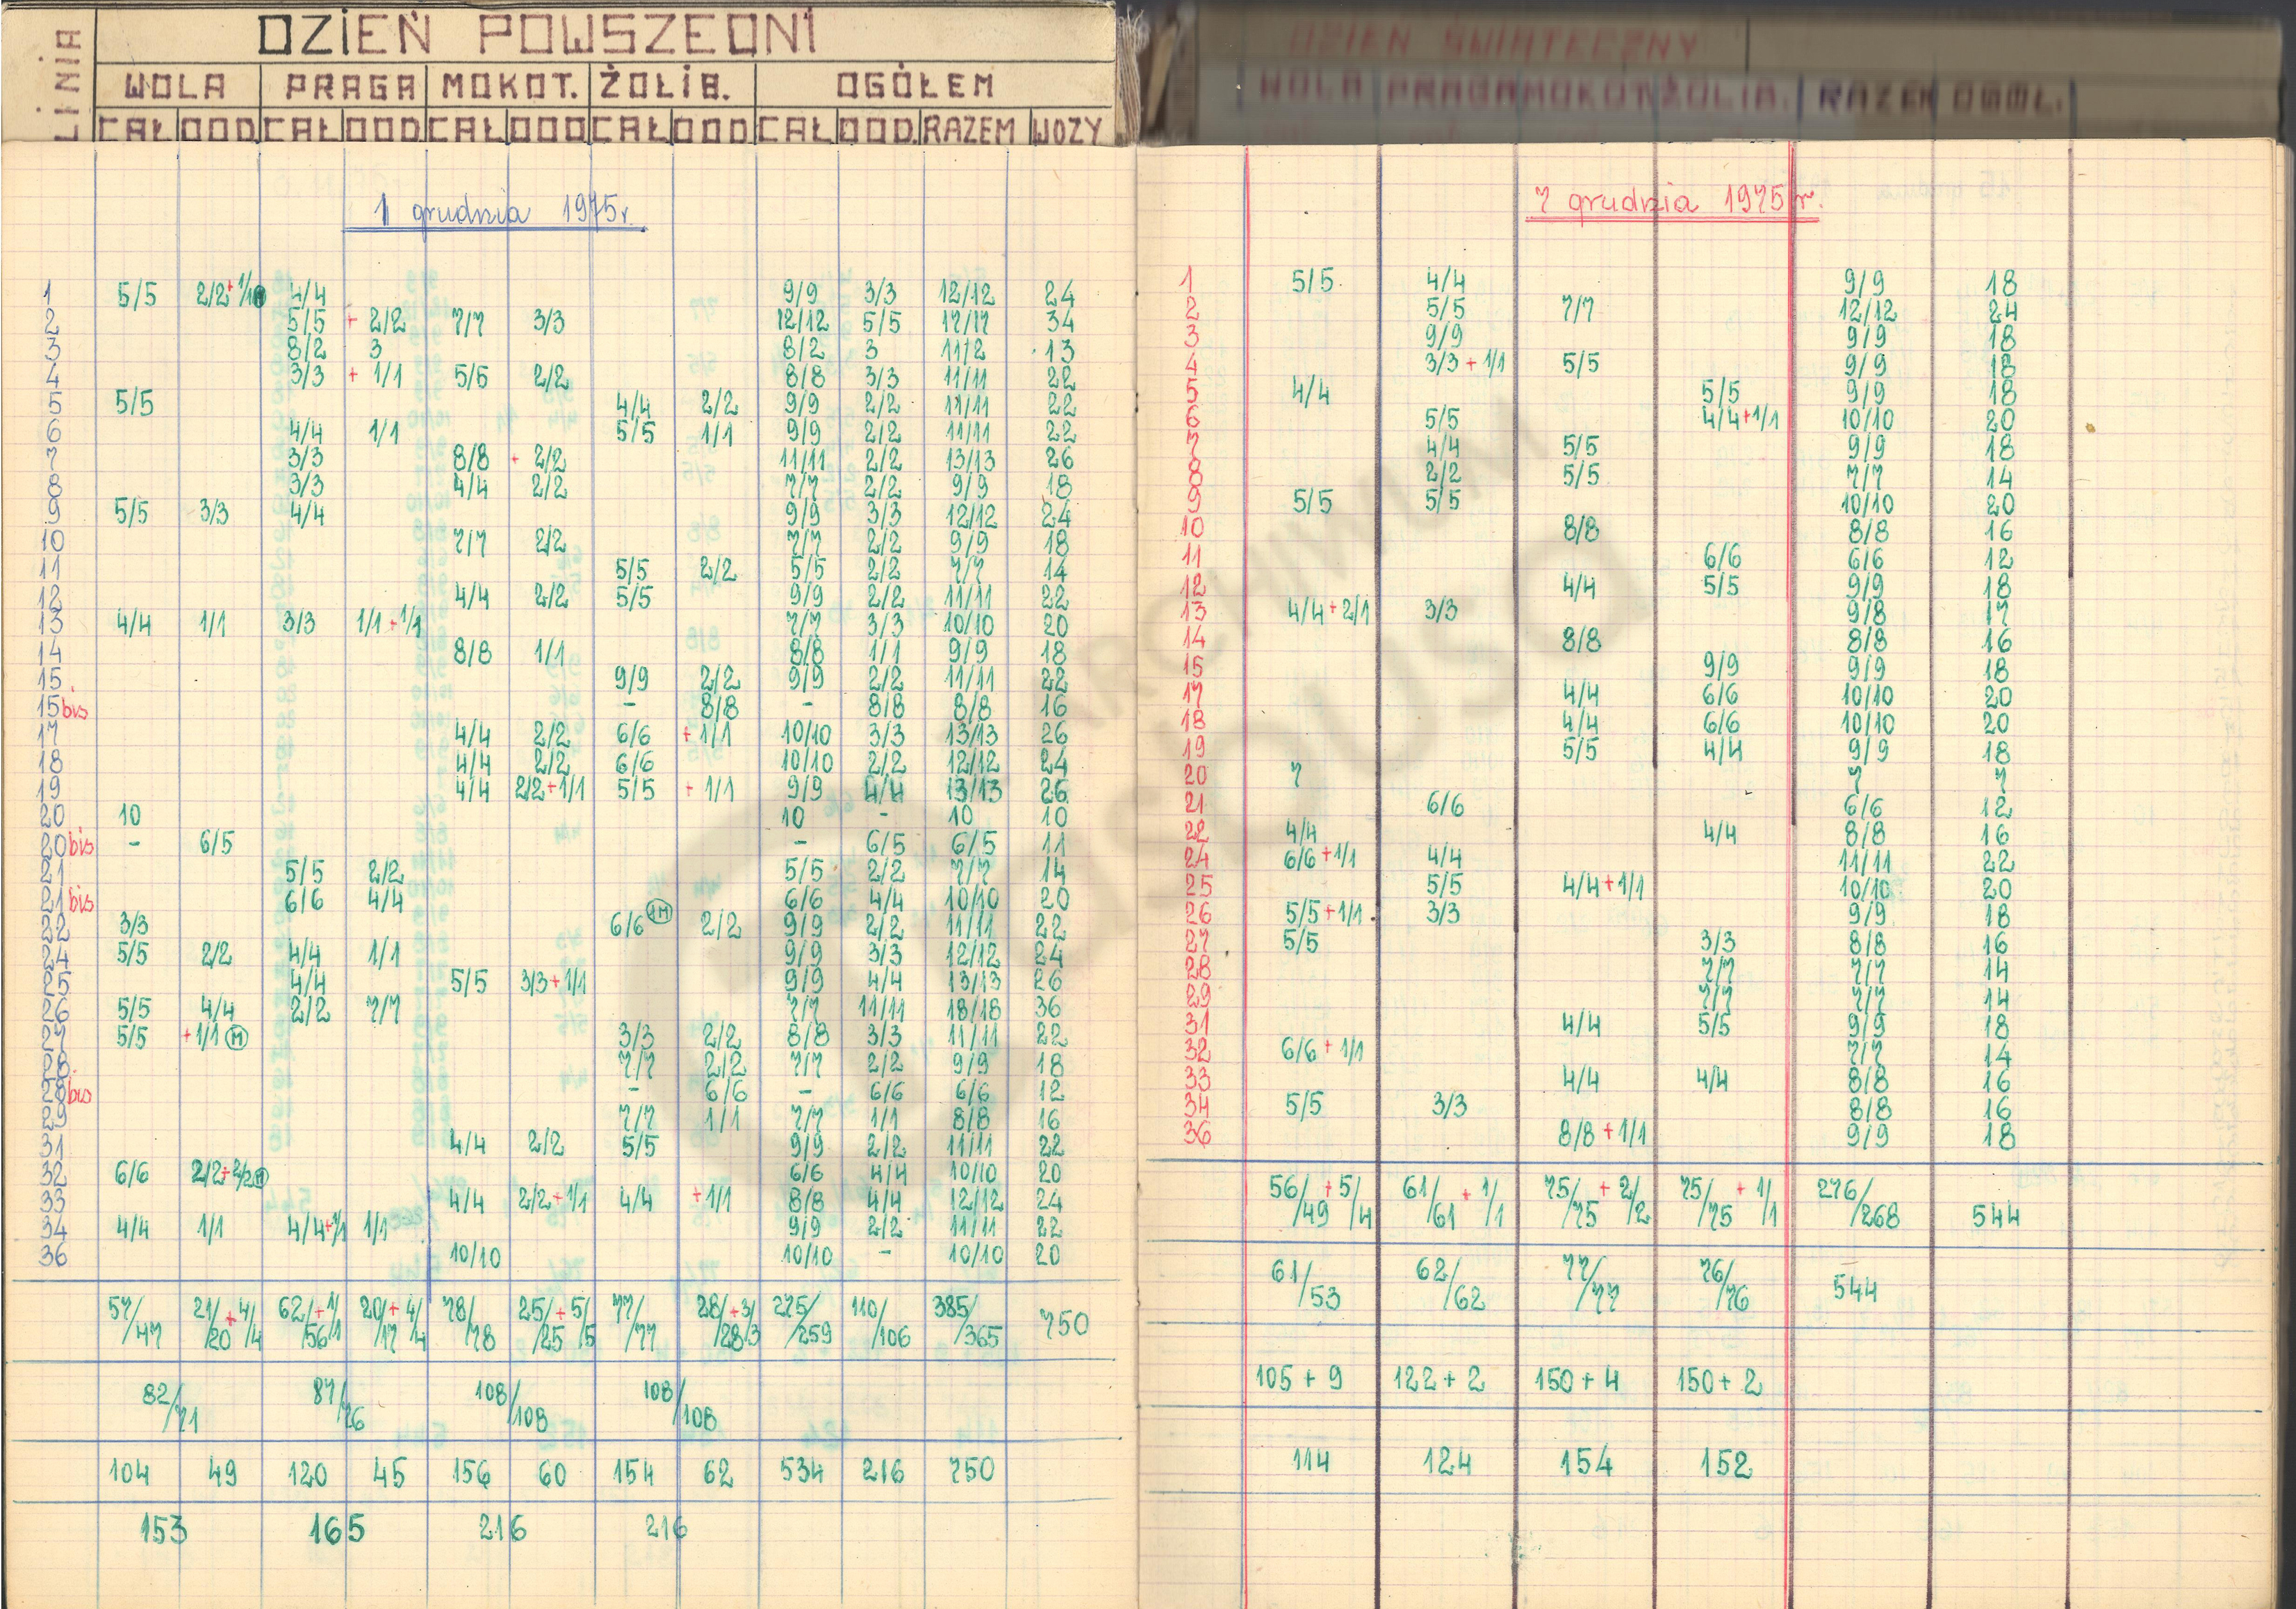 LINIA DZIEŃ POWSZEDNI
WOLA PRAGA MOKOT. ŻOLIB. OGÓŁEM
CAŁ DOD. CAŁ DOD CAŁ DOD CAŁ DOD CAŁ DOD. RAZEM WOZY
1 grudnia 1975r.
1 5/5 2/2+1/1 4/4 9/9 3/3 12/12 24
2 5/5 + 2/2 7/7 3/3 12/12 5/5 17/17 34
3 8/2 3 8/2 3 11/2 13
4 3/3 + 1/1 5/5 2/2 8/8 3/3 11/11 22
5 5/5 4/4 2/2 9/9 2/2 11/11 22
6 4/4 1/1 5/5 1/1 9/9 2/2 11/11 22
7 3/3 8/8 + 2/2 11/11 2/2 13/13 26
8 3/3 4/4 2/2 7/7 2/2 9/9 18
9 5/5 3/3 4/4 9/9 3/3 12/12 24
10 7/7 2/2 7/7 2/2 9/9 18
11 5/5 2/2 5/5 2/2 7/7 14
12 4/4 2/2 5/5 9/9 2/2 11/11 22
13 4/4 1/1 3/3 1/1+1/1 7/7 3/3 10/10 20
14 8/8 1/1 8/8 1/1 9/9 18
15 9/9 2/2 9/9 2/2 11/11 22
15bis - 8/8 - 8/8 8/8 16
17 4/4 2/2 6/6 + 1/1 10/10 3/3 13/13 26
18 4/4 2/2 6/6 10/10 2/2 12/12 24
19 4/4 2/2+1/1 5/5 + 1/1 9/9 4/4 13/13 26
20 10 10 - 10 10
20bis - 6/5 - 6/5 6/5 11
21 5/5 2/2 5/5 2/2 7/7 14
21bis 6/6 4/4 6/6 4/4 10/10 20
22 3/3 6/6 1M 2/2 9/9 2/2 11/11 22
24 5/5 2/2 4/4 1/1 9/9 3/3 12/12 24
25 4/4 5/5 3/3+1/1 9/9 4/4 13/13 26
26 5/5 4/4 2/2 7/7 7/7 11/11 18/18 36
27 5/5 +1/1 M 3/3 2/2 8/8 3/3 11/11 22
28 7/7 2/2 7/7 2/2 9/9 18
28bis - 6/6 - 6/6 6/6 12
29 7/7 1/1 7/7 1/1 8/8 16
31 4/4 2/2 5/5 9/9 2/2 11/11 22
32 6/6 2/2+2/2 M 6/6 4/4 10/10 20
33 4/4 2/2+1/1 4/4 +1/1 8/8 4/4 12/12 24
34 4/4 1/1 4/4+1/1 1/1 9/9 2/2 11/11 22
36 10/10 10/10 - 10/10 20
57/47 21/20+4/4 62/56+1/1 20/17+4/4 78/78 25/25+5/5 77/77 28/28+3/3 275/259 110/106 385/365 750
82/71 87/76 108/108 108/108
104 49 120 45 156 60 154 62 534 216 750
153 165 216 216
DZIEŃ ŚWIĄTECZNY
WOLA PRAGA MOKOT ŻOLIB. RAZEM OGÓŁ.
7 grudnia 1975 r.
1 5/5 4/4 9/9 18
2 5/5 7/7 12/12 24
3 9/9 9/9 18
4 3/3 + 1/1 5/5 9/9 18
5 4/4 5/5 9/9 18
6 5/5 4/4+1/1 10/10 20
7 4/4 5/5 9/9 18
8 2/2 5/5 7/7 14
9 5/5 5/5 10/10 20
10 8/8 8/8 16
11 6/6 6/6 12
12 4/4 5/5 9/9 18
13 4/4+2/1 3/3 9/8 17
14 8/8 8/8 16
15 9/9 9/9 18
17 4/4 6/6 10/10 20
18 4/4 6/6 10/10 20
19 5/5 4/4 9/9 18
20 7 7 7
21 6/6 6/6 12
22 4/4 4/4 8/8 16
24 6/6+1/1 4/4 11/11 22
25 5/5 4/4+1/1 10/10 20
26 5/5+1/1 3/3 9/9 18
27 5/5 3/3 8/8 16
28 7/7 7/7 14
29 7/7 7/7 14
31 4/4 5/5 9/9 18
32 6/6+1/1 7/7 14
33 4/4 4/4 8/8 16
34 5/5 3/3 8/8 16
36 8/8+1/1 9/9 18
56/49+5/4 61/61+1/1 75/75+2/2 75/75+1/1 276/268 544
61/53 62/62 77/77 76/76 544
105 + 9 122 + 2 150 + 4 150 + 2
114 124 154 152
ARCHIWUM